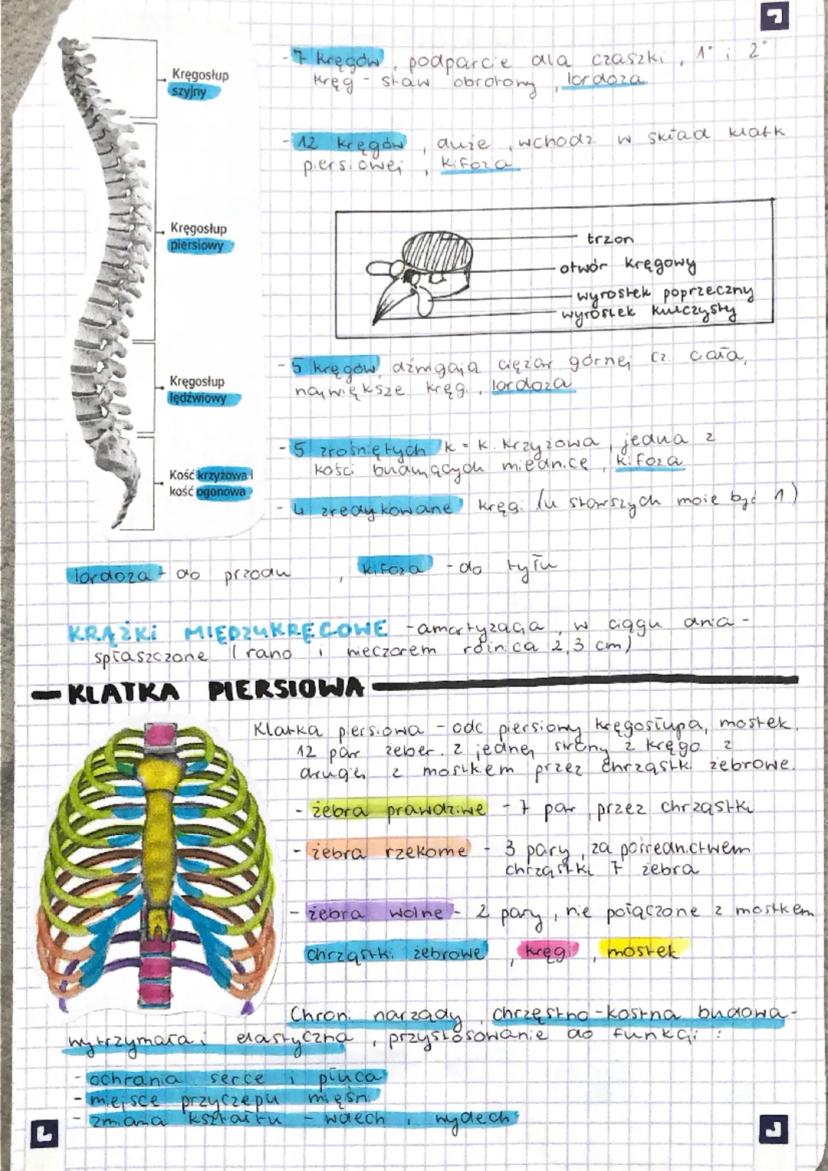 Kręgosłup
szyjny
- 7 kręgów, podparcie dla czaszki, 1° i 2°
kręg - staw obrotowy, lordoza
Kręgosłup
piersiowy
- 12 kręgów, duże, wchodz w skład klatk
piersiowej, kifoza
trzon
otwór kręgowy
wyrostek poprzeczny
wyrostek kulczysty
Kręgosłup
lędźwiowy
- 5 kręgów, dźwigają ciężar górnej cz. ciała,
największe kręg, lordoza
Kość krzyżowa i
kość ogonowa
- 5 zrośniętych k = k. krzyżowa, jedna z
kości budujących miednicę, kifoza
- 4 zredykowane kręgi (u starszych może być 1)
lordoza - do przodu, kifoza - do tyłu
KRĄŻKI MIĘDZYKRĘGOWE - amortyzacja, w ciągu dnia -
spłaszczone (rano i wieczorem różnica 2,3 cm)
KLATKA PIERSIOWA
Klatka piersiowa - odc piersiowy kręgosłupa, mostek,
12 par żeber. z jednej strony z kręgo z
drugiej z mostkem przez chrząstk żebrowe.
- żebra prawdziwe - 7 par, przez chrząstki
- żebra rzekome - 3 pary, za pośrednictwem
chrząstki 7 żebra
- żebra wolne - 2 pary, nie połączone z mostkem
chrząstki żebrowe, kręgi, mostek
Chroni narządy, chrzęstno-kostna budowa -
wytrzymała i elastyczna, przystosowanie do funkcji:
- ochrania serce i płuca
- miejsce przyczepu mięśni
- zmiana kształtu - wdech i wydech